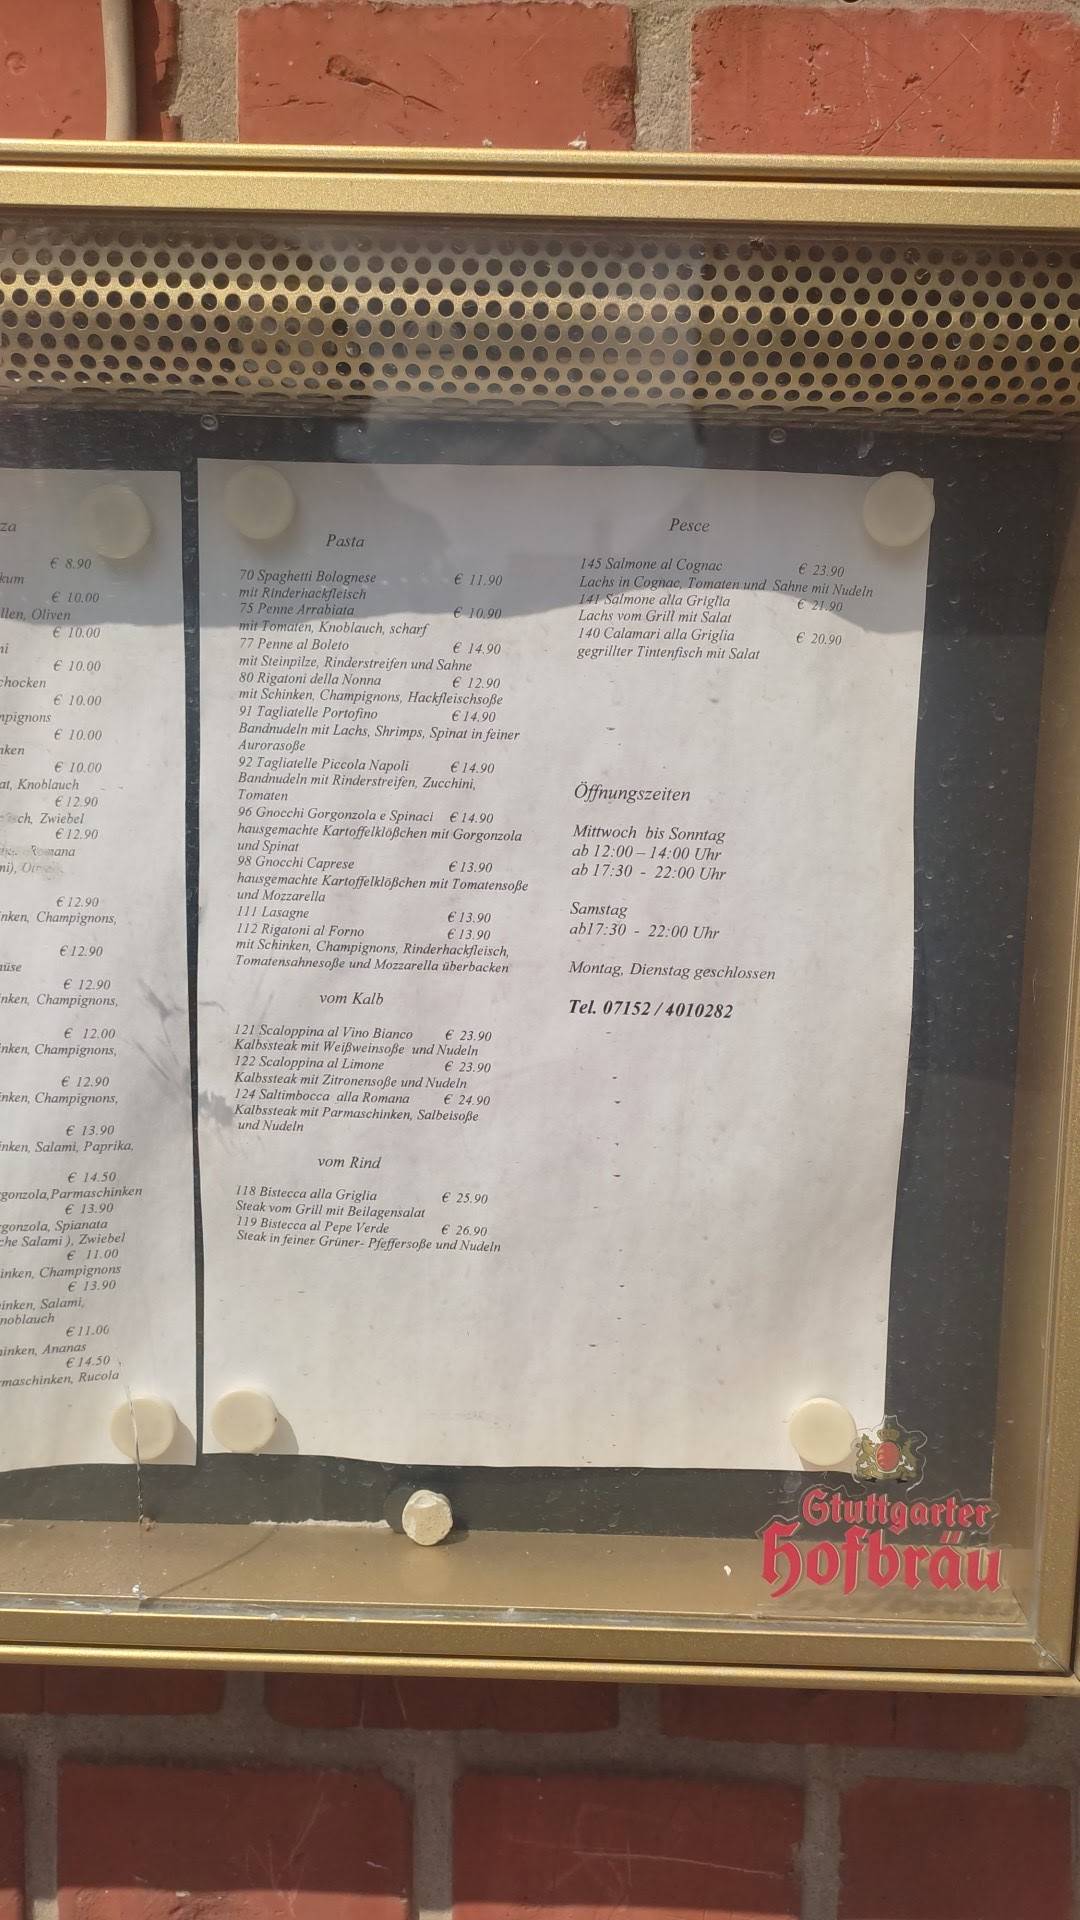 za
€ 8.90
kum
€ 10.00
llen, Oliven
€ 10.00
ni
€ 10.00
chocken
€ 10.00
npignons
€ 10.00
nken
€ 10.00
at, Knoblauch
€ 12.90
sch, Zwiebel
€ 12.90
mana
€ 12.90
inken, Champignons,
€ 12.90
nüse
€ 12.90
inken, Champignons,
€ 12.00
inken, Champignons,
€ 12.90
inken, Champignons,
€ 13.90
inken, Salami, Paprika,
€ 14.50
rgonzola,Parmaschinken
€ 13.90
rgonzola, Spianata
che Salami ), Zwiebel
€ 11.00
inken, Champignons
€ 13.90
inken, Salami,
noblauch
€ 11.00
inken, Ananas
€ 14.50
rmaschinken, Rucola
Pasta
70 Spaghetti Bolognese € 11.90
mit Rinderhackfleisch
75 Penne Arrabiata € 10.90
mit Tomaten, Knoblauch, scharf
77 Penne al Boleto € 14.90
mit Steinpilze, Rinderstreifen und Sahne
80 Rigatoni della Nonna € 12.90
mit Schinken, Champignons, Hackfleischsoße
91 Tagliatelle Portofino € 14.90
Bandnudeln mit Lachs, Shrimps, Spinat in feiner
Aurorasoße
92 Tagliatelle Piccola Napoli € 14.90
Bandnudeln mit Rinderstreifen, Zucchini,
Tomaten
96 Gnocchi Gorgonzola e Spinaci € 14.90
hausgemachte Kartoffelklößchen mit Gorgonzola
und Spinat
98 Gnocchi Caprese € 13.90
hausgemachte Kartoffelklößchen mit Tomatensoße
und Mozzarella
111 Lasagne € 13.90
112 Rigatoni al Forno € 13.90
mit Schinken, Champignons, Rinderhackfleisch,
Tomatensahnesoße und Mozzarella überbacken
vom Kalb
121 Scaloppina al Vino Bianco € 23.90
Kalbssteak mit Weißweinsoße und Nudeln
122 Scaloppina al Limone € 23.90
Kalbssteak mit Zitronensoße und Nudeln
124 Saltimbocca alla Romana € 24.90
Kalbssteak mit Parmaschinken, Salbeisoße
und Nudeln
vom Rind
118 Bistecca alla Griglia € 25.90
Steak vom Grill mit Beilagensalat
119 Bistecca al Pepe Verde € 26.90
Steak in feiner Grüner- Pfeffersoße und Nudeln
Pesce
145 Salmone al Cognac € 23.90
Lachs in Cognac, Tomaten und Sahne mit Nudeln
141 Salmone alla Griglia € 21.90
Lachs vom Grill mit Salat
140 Calamari alla Griglia € 20.90
gegrillter Tintenfisch mit Salat
Öffnungszeiten
Mittwoch bis Sonntag
ab 12:00 – 14:00 Uhr
ab 17:30 - 22:00 Uhr
Samstag
ab17:30 - 22:00 Uhr
Montag, Dienstag geschlossen
Tel. 07152 / 4010282
Stuttgarter
Hofbräu